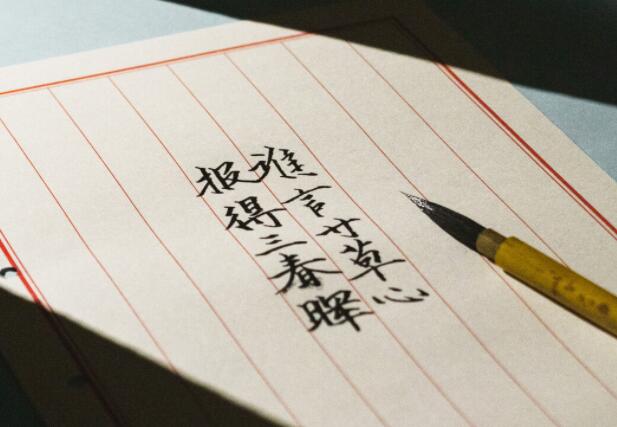 谁言寸草心
报得三春晖